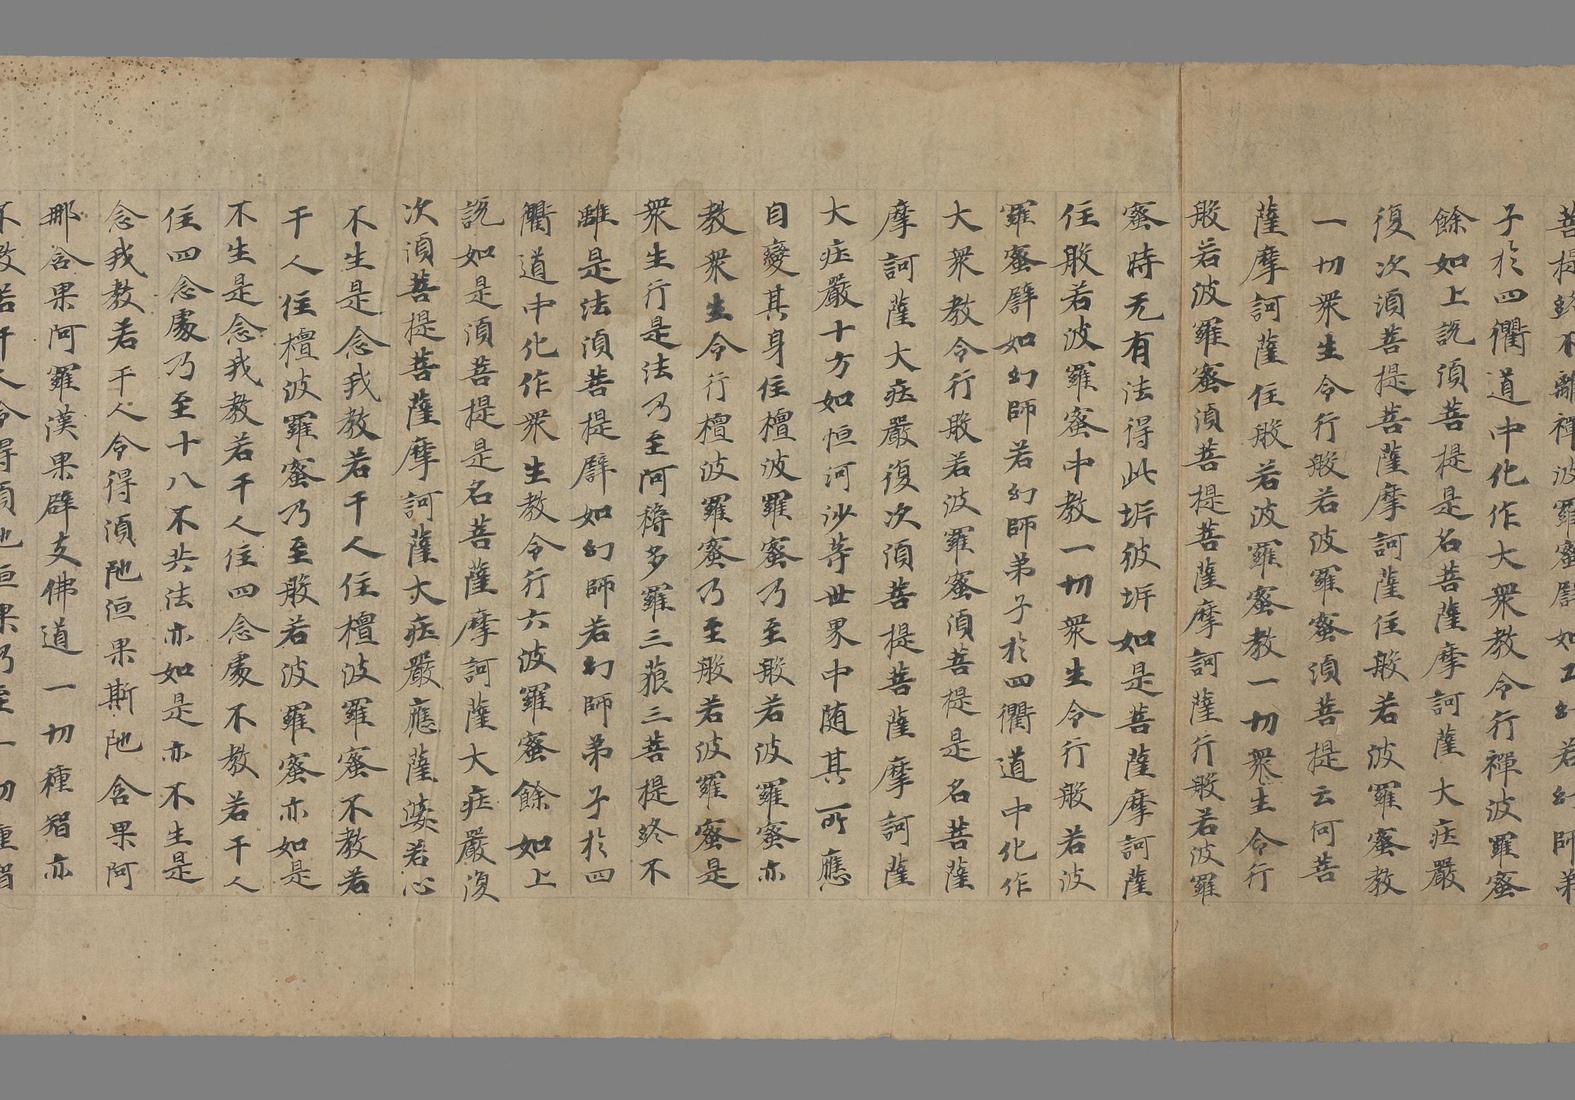 菩提終不離禪波羅蜜譬如工幻若幻師弟
子於四衢道中化作大衆教令行禪波羅蜜
餘如上説湏菩提是名菩薩摩訶薩大莊嚴
復次湏菩提菩薩摩訶薩住般若波羅蜜教
一切衆生令行般若波羅蜜湏菩提云何菩
薩摩訶薩住般若波羅蜜教一切衆生令行
般若波羅蜜湏菩提菩薩摩訶薩行般若波羅
蜜時无有法得此坼彼坼如是菩薩摩訶薩
住般若波羅蜜中教一切衆生令行般若波
羅蜜譬如幻師若幻師弟子於四衢道中化作
大衆教令行般若波羅蜜湏菩提是名菩薩
摩訶薩大莊嚴復次湏菩提菩薩摩訶薩
大莊嚴十方如恒河沙等世界中随其所應
自變其身住檀波羅蜜乃至般若波羅蜜亦
教衆生令行檀波羅蜜乃至般若波羅蜜是
衆生行是法乃至阿耨多羅三藐三菩提終不
離是法湏菩提譬如幻師若幻師弟子於四
衢道中化作衆生教令行六波羅蜜餘如上
説如是湏菩提是名菩薩摩訶薩大莊嚴復
次湏菩提菩薩摩訶薩大莊嚴應薩婆若心
不生是念我教若干人住檀波羅蜜不教若
干人住檀波羅蜜乃至般若波羅蜜亦如是
不生是念我教若干人住四念處不教若干人
住四念處乃至十八不共法亦如是亦不生是
念我教若干人令得湏陁洹果斯陁含果阿
那含果阿羅漢果辟支佛道一切種智亦
不教若干人令得湏陁洹果乃至一切種智